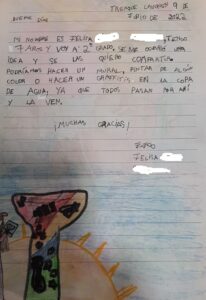 TRENQUE LAUQUEN 9 DE
JULIO DE 2022
BUENOS DÍAS
MI NOMBRE ES FELISA , TENGO
7 AÑOS Y VOY A 2° GRADO, SE ME OCURRIÓ UNA
IDEA Y SE LAS QUIERO COMPARTIR
PODRÍAMOS HACER UN MURAL, PINTAR DE ALGÚN
COLOR O HACER UN GRAFITIS EN LA COPA
DE AGUA, YA QUE TODOS PASAN POR AHÍ
Y LA VEN.
¡MUCHAS GRACIAS!
FELISA